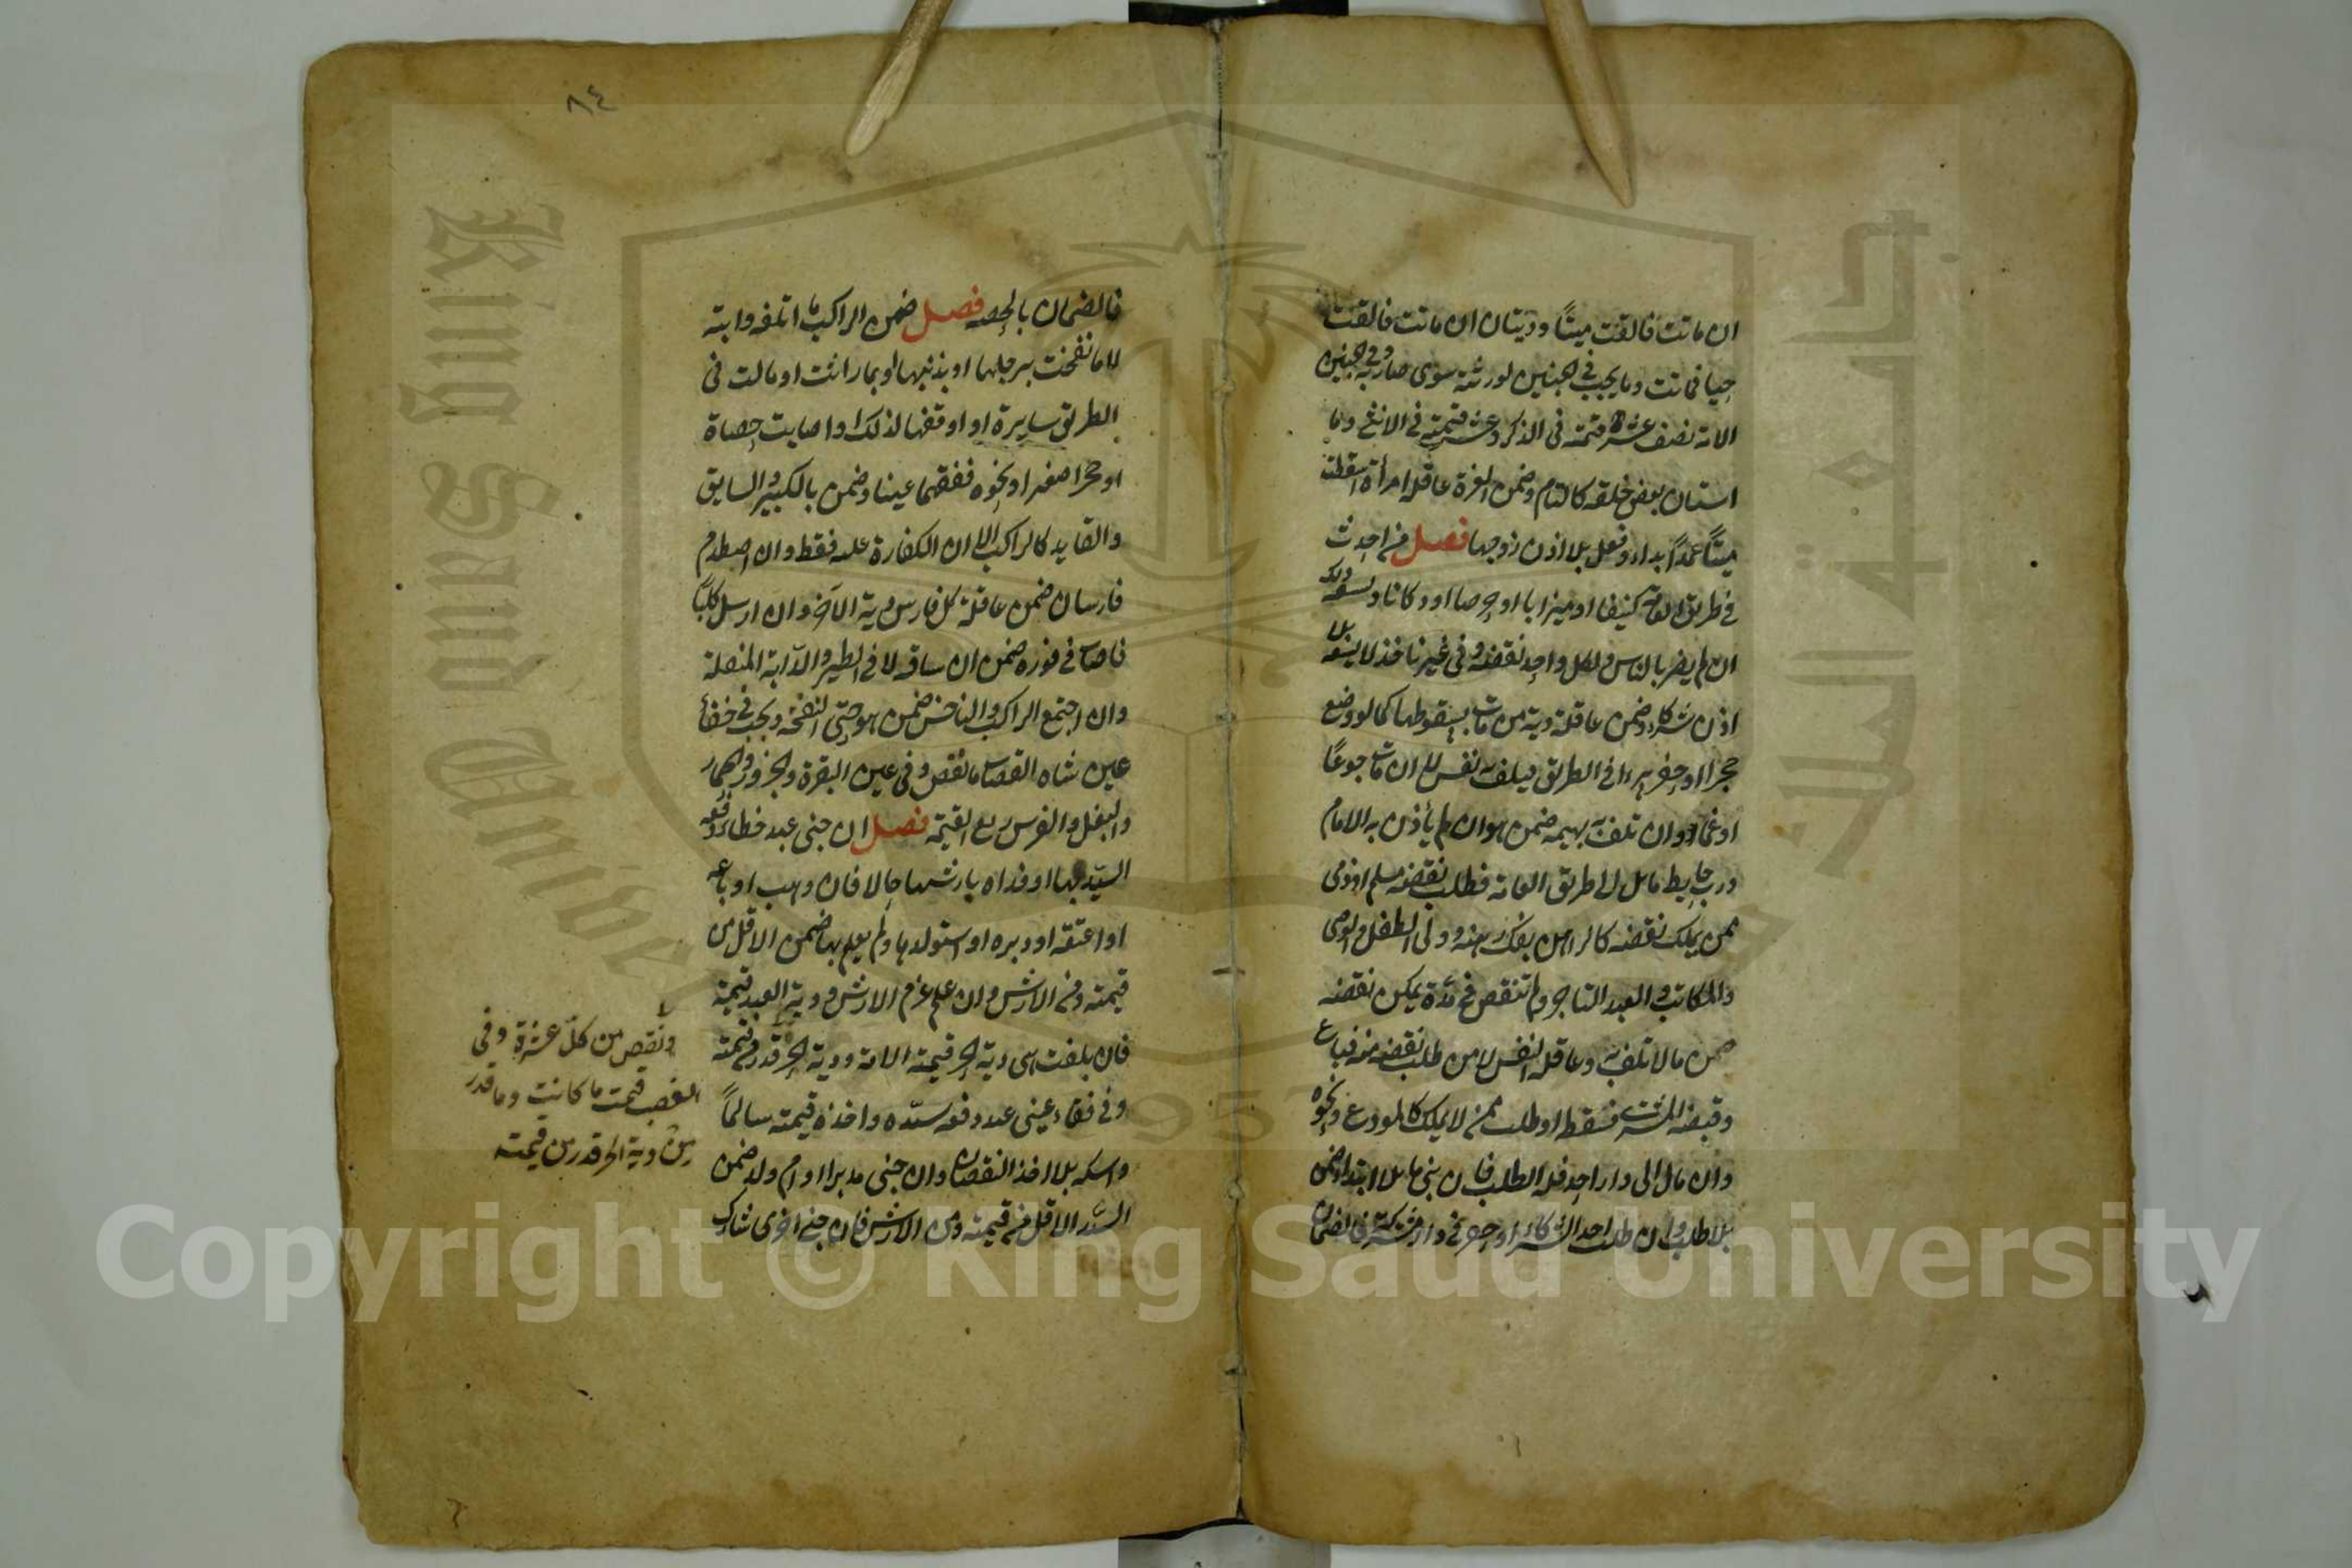 ان ماتت فالقت ميتا وديتان ان ماتت فالقت
حيا فماتت وما يجب في الجنين لورثته سوى ضاربه وفي جنين
الامة نصف عشر قيمته في الذكر وعشر قيمته في الانثى وما
استبان بعض خلقه كالتام وضمن الغرة عاقلة امرأة اسقطت
ميتا عمدا بدواء او فعل بلا اذن زوجها فصل من احدث
في طريق العامة كنيفا او ميزابا او جرصنا او دكانا وسعه ذلك
ان لم يضر بالناس ولكل واحد نقضه وفي غير نافذ لا يسعه بلا
اذن شركاء وضمن عاقلته دية من مات بسقوطها كما لو وضع
حجرا او حفر بيرا في الطريق فيتلف به نفس لا ان مات جوعا
او غما وان تلف به بهيمة ضمن هو ان لم يأذن به الامام
ورب حايط مايل الى طريق العامة فطلب نقضه مسلم او ذمي
ممن يملك نقضه كالراهن بفك رهنه وولي الطفل والوصي
والمكاتب والعبد التاجر ولم تنقض في مدة يمكن نقضه
ضمن مالا تلف به وعاقلته النفس لا من طلب نقضه منه فباع
وقبضه المشتري فسقط او طلب ممن لا يملك كالمودع ونحوه
وان مال الى دار احد فله الطلب فان بنى مايلا ابتداء ضمن
بلا طلب وان طلب احد الشركاء او حفر في دار مشتركة فالضمان
٨٤
فالضمان بالحصة فصل ضمن الراكب ما اتلفه دابته
لا ما نفحت برجلها او بذنبها او بما راثت او بالت في
الطريق سايرة او اوقفها لذلك او اصابت حصاة
او حجرا صغيرا او نحوه ففقهما عينا وضمن بالكبير والسايق
والقايد كالراكب الا ان الكفارة عليه فقط وان اصطدم
فارسان ضمن عاقلة كل فارس دية الآخر وان ارسل كلبا
فاصاب في فوره ضمن ان ساقه لا في الطير والدابة المنفلتة
وان اجتمع الراكب والناخس ضمن هو حتى النفحة ويجب في فقاء
عين شاة القصاب ما نقص وفي عين البقرة والجزور والحمار
والبغل والفرس ربع القيمة فصل ان جنى عبد خطاء دفعه
السيد بها او فداه بارشها حالا فان وهب او باعه
او اعتقه او دبره او استولدها ولم يعلم بها ضمن الاقل من
قيمته ومن الارش وان علم غرم الارش ودية العبد قيمته
فان بلغت هي دية الحر قيمة الامة ودية الحر قد من قيمته
وفي فقاء عيني عبد دفعه سيده واخذ قيمته سالما
وامسكه بلا اخذ النقصان وان جنى مدبر او ام ولد ضمن
السيد الاقل من قيمته ومن الارش فان جنى اخرى شارك
ونقص من كل عشرة وفي
الغصب قيمت ما كانت وما قدر
من دية الحر قدر من قيمته
Copyright © King Saud University
King Saud University
1957